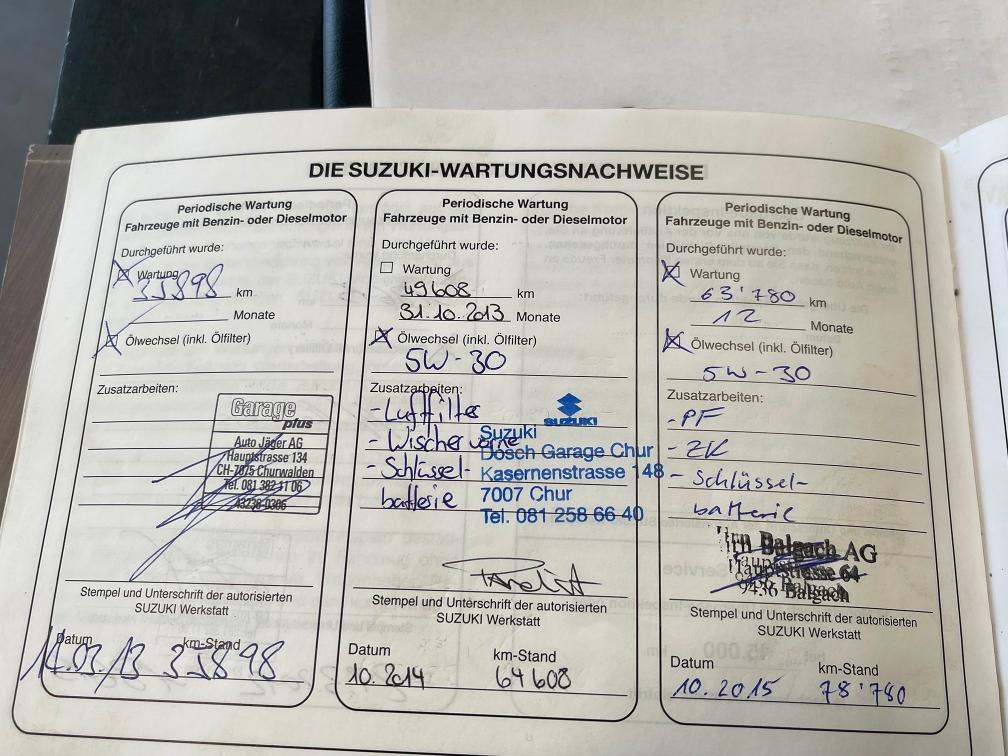 DIE SUZUKI-WARTUNGSNACHWEISE
Periodische Wartung
Fahrzeuge mit Benzin- oder Dieselmotor
Durchgeführt wurde:
Wartung
35898 km
Monate
Ölwechsel (inkl. Ölfilter)
Zusatzarbeiten:
Garage
plus
Auto Jäger AG
Hauptstrasse 134
CH-7075 Churwalden
Tel. 081 382 11 06
Stempel und Unterschrift der autorisierten
SUZUKI Werkstatt
Datum km-Stand
14.03/13 35898
Periodische Wartung
Fahrzeuge mit Benzin- oder Dieselmotor
Durchgeführt wurde:
Wartung
49608 km
31.10.2013 Monate
Ölwechsel (inkl. Ölfilter)
5W-30
Zusatzarbeiten:
- Luftfilter
- Wischer vorne
- Schlüssel-
batterie
SUZUKI
Suzuki
Dosch Garage Chur
Kasernenstrasse 148
7007 Chur
Tel. 081 258 66 40
Stempel und Unterschrift der autorisierten
SUZUKI Werkstatt
Datum km-Stand
10.2014 64608
Periodische Wartung
Fahrzeuge mit Benzin- oder Dieselmotor
Durchgeführt wurde:
Wartung
63'780 km
12 Monate
Ölwechsel (inkl. Ölfilter)
5W-30
Zusatzarbeiten:
- PF
- ZK
- Schlüssel-
batterie
Balgach AG
64
9436 Balgach
Stempel und Unterschrift der autorisierten
SUZUKI Werkstatt
Datum km-Stand
10.2015 78'780